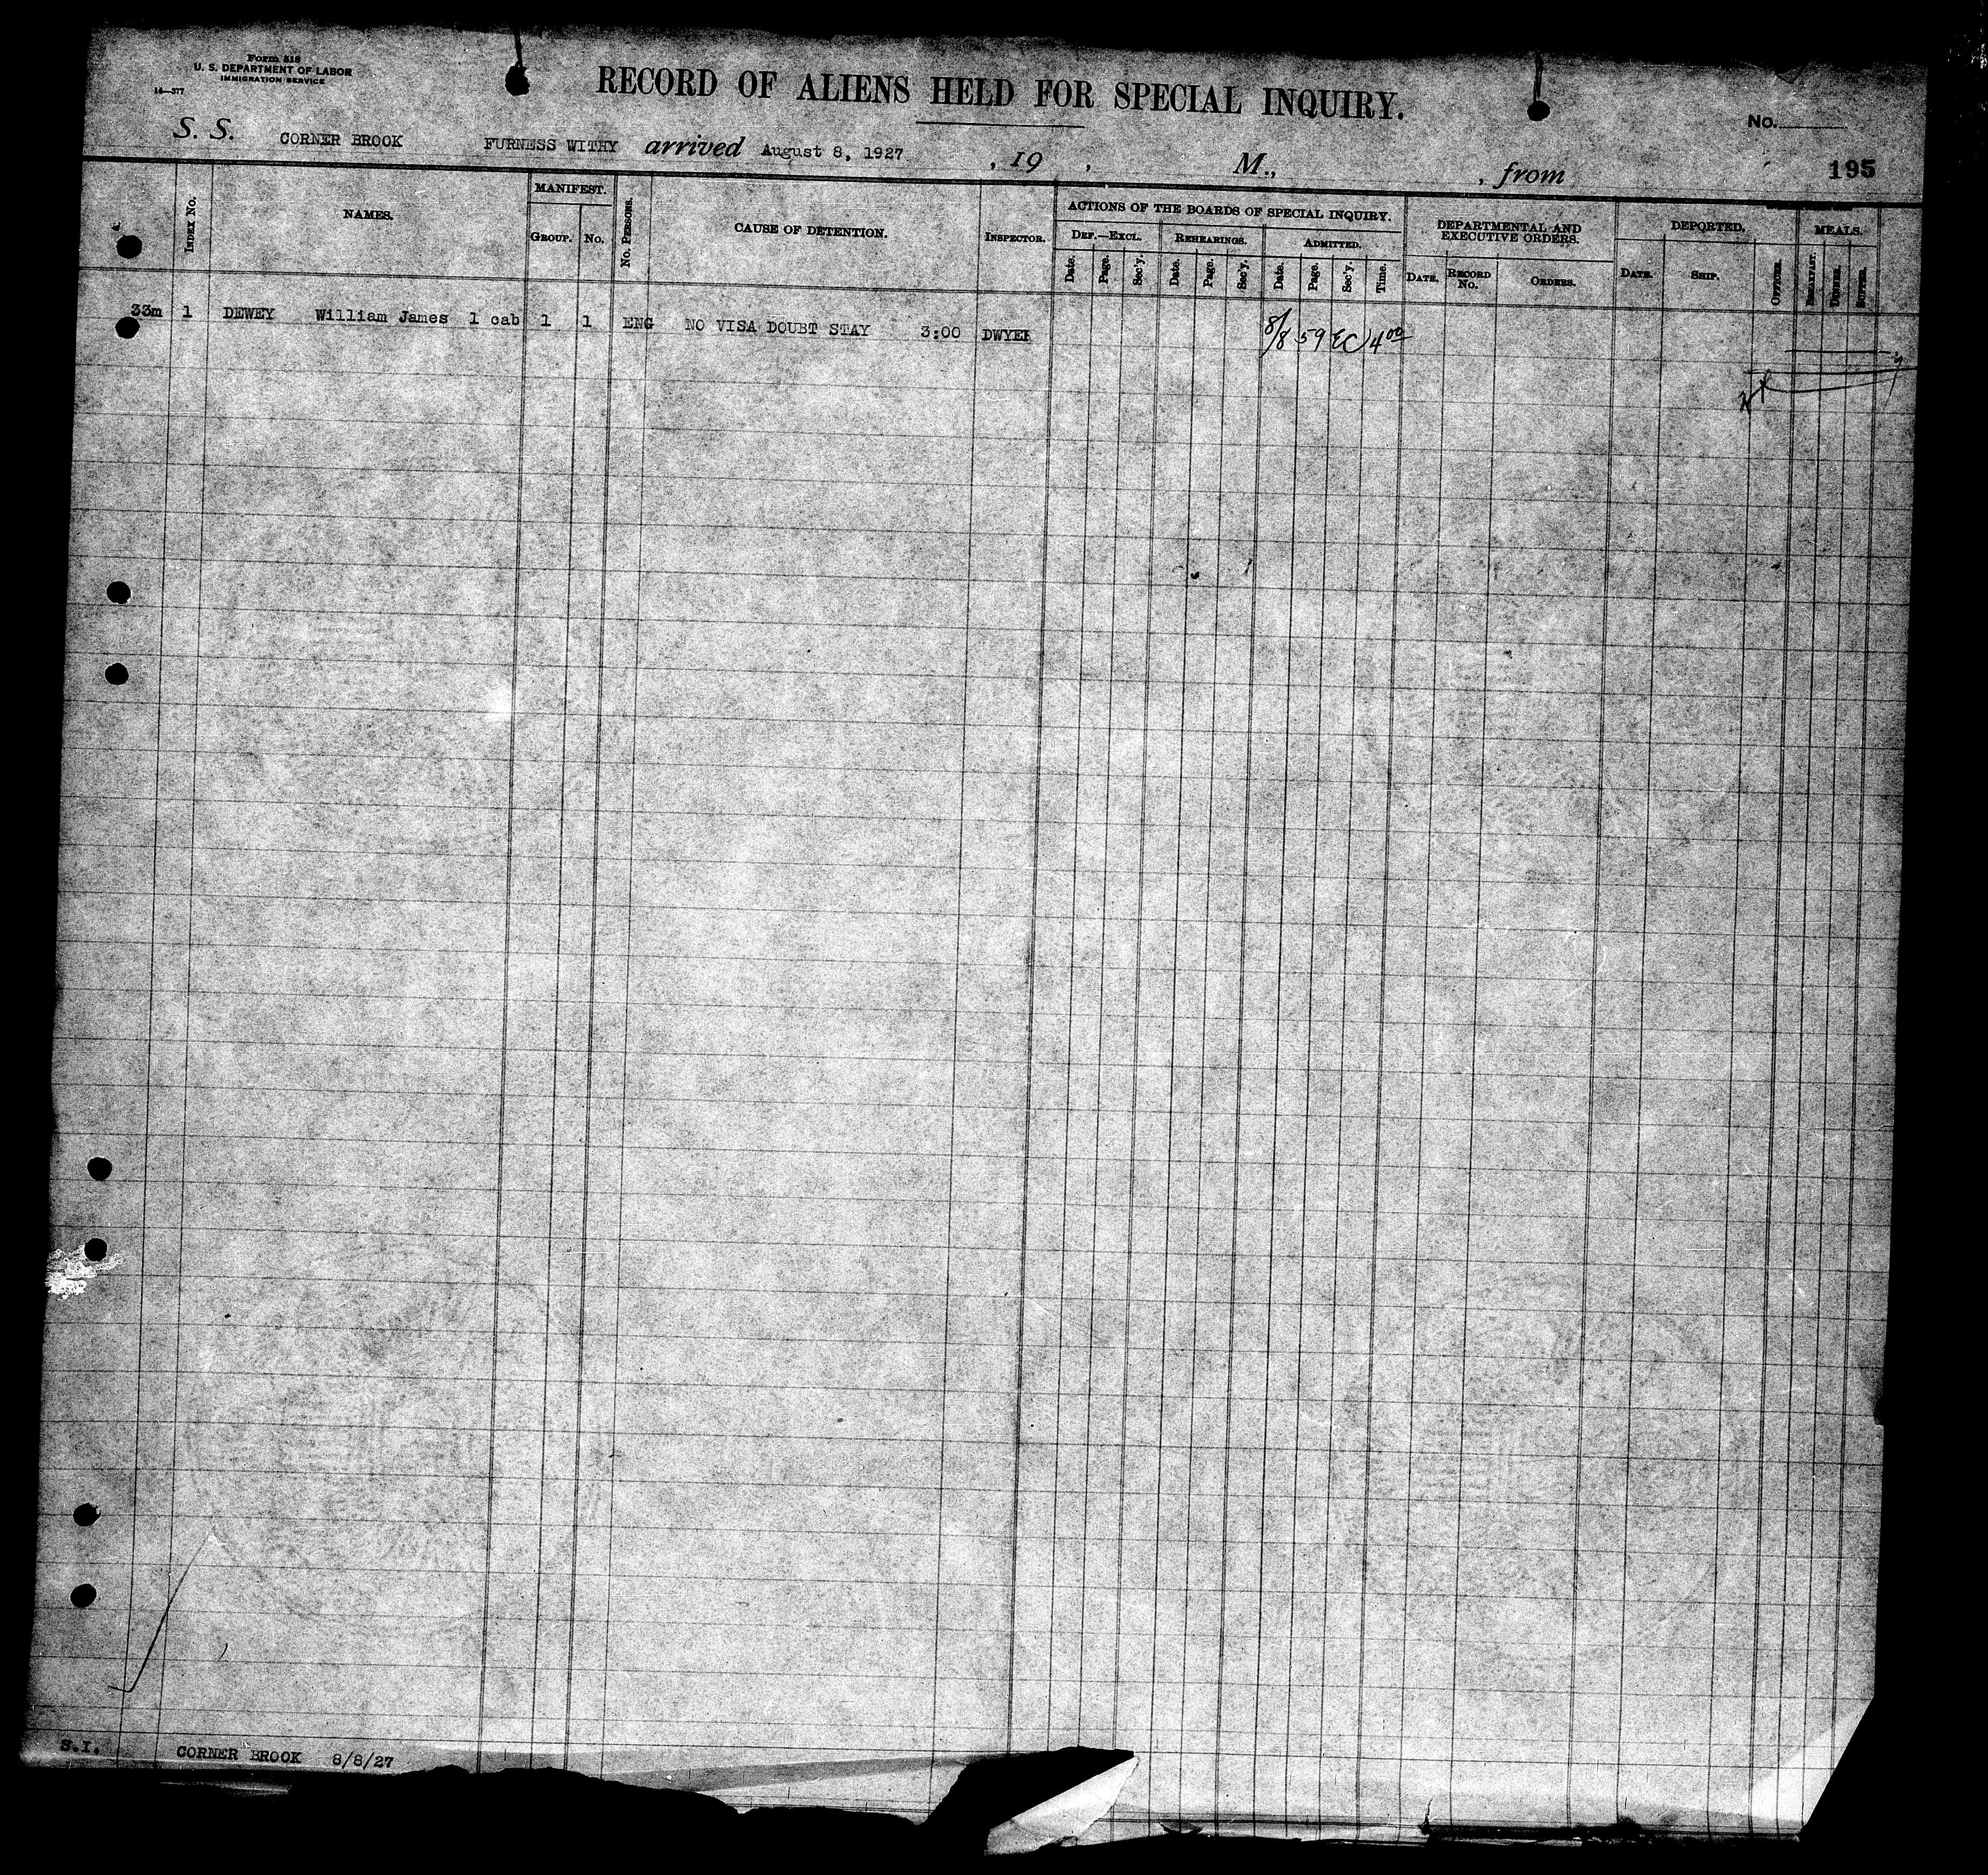 Form 518
U. S. DEPARTMENT OF LABOR
IMMIGRATION SERVICE
14—377
RECORD OF ALIENS HELD FOR SPECIAL INQUIRY.
No.
S. S. CORNER BROOK FURNESS WITHY arrived August 8, 1927 , 19 , M., , from 195
INDEX No. NAMES. MANIFEST. GROUP. No. No. PERSONS. CAUSE OF DETENTION. INSPECTOR. ACTIONS OF THE BOARDS OF SPECIAL INQUIRY. DEPARTMENTAL AND EXECUTIVE ORDERS. DEPORTED. MEALS.
DEF.—EXCL. REHEARINGS. ADMITTED.
Date. Page. Sec'y. Date. Page. Sec'y. Date. Page. Sec'y. Time. DATE. RECORD No. ORDERS. DATE. SHIP. OFFICER. BREAKFAST. DINNER. SUPPER.
33m 1 DEWEY William James 1 cab 1 1 ENG NO VISA DOUBT STAY 3:00 DWYER 8/8 59 EC 4 00
S.I. CORNER BROOK 8/8/27